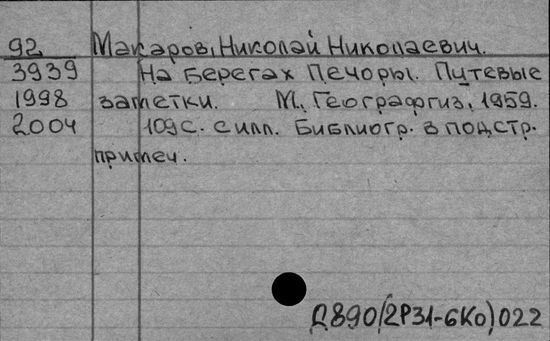 92 Макаров, Николай Николаевич.
3939 На берегах Печоры. Путевые
1998 заметки. М., Географгиз, 1959.
2004 109с. с илл. Библиогр. в подстр.
примеч.
Д890(2Р31-6Ко)022